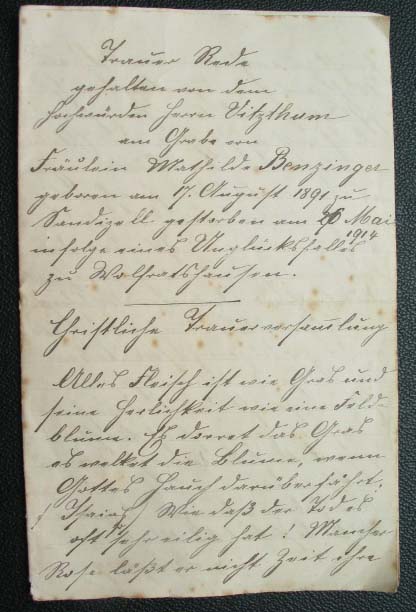 Trauer Rede
gehalten von dem
hochwürden Herrn Sitzthum
am Grabe von
Fräulein Mathilde Benzinger
geboren am 17. August 1891 zu
Sandizell gestorben am 26 Mai
1914
infolge eines Unglücksfalles
zu Wolfratshausen.
Christliche Trauerversamlung
Alles Fleisch ist wie Gras und
seine Herlichkeit wie eine Feld-
blume. Es dorret das Gras
es welket die Blume, wenn
Gottes Hauch darüberfährt.
(Isaias) Wie daß der Tod es
oft sehr eilig hat! Mancher
Rose läßt er nicht Zeit ihre